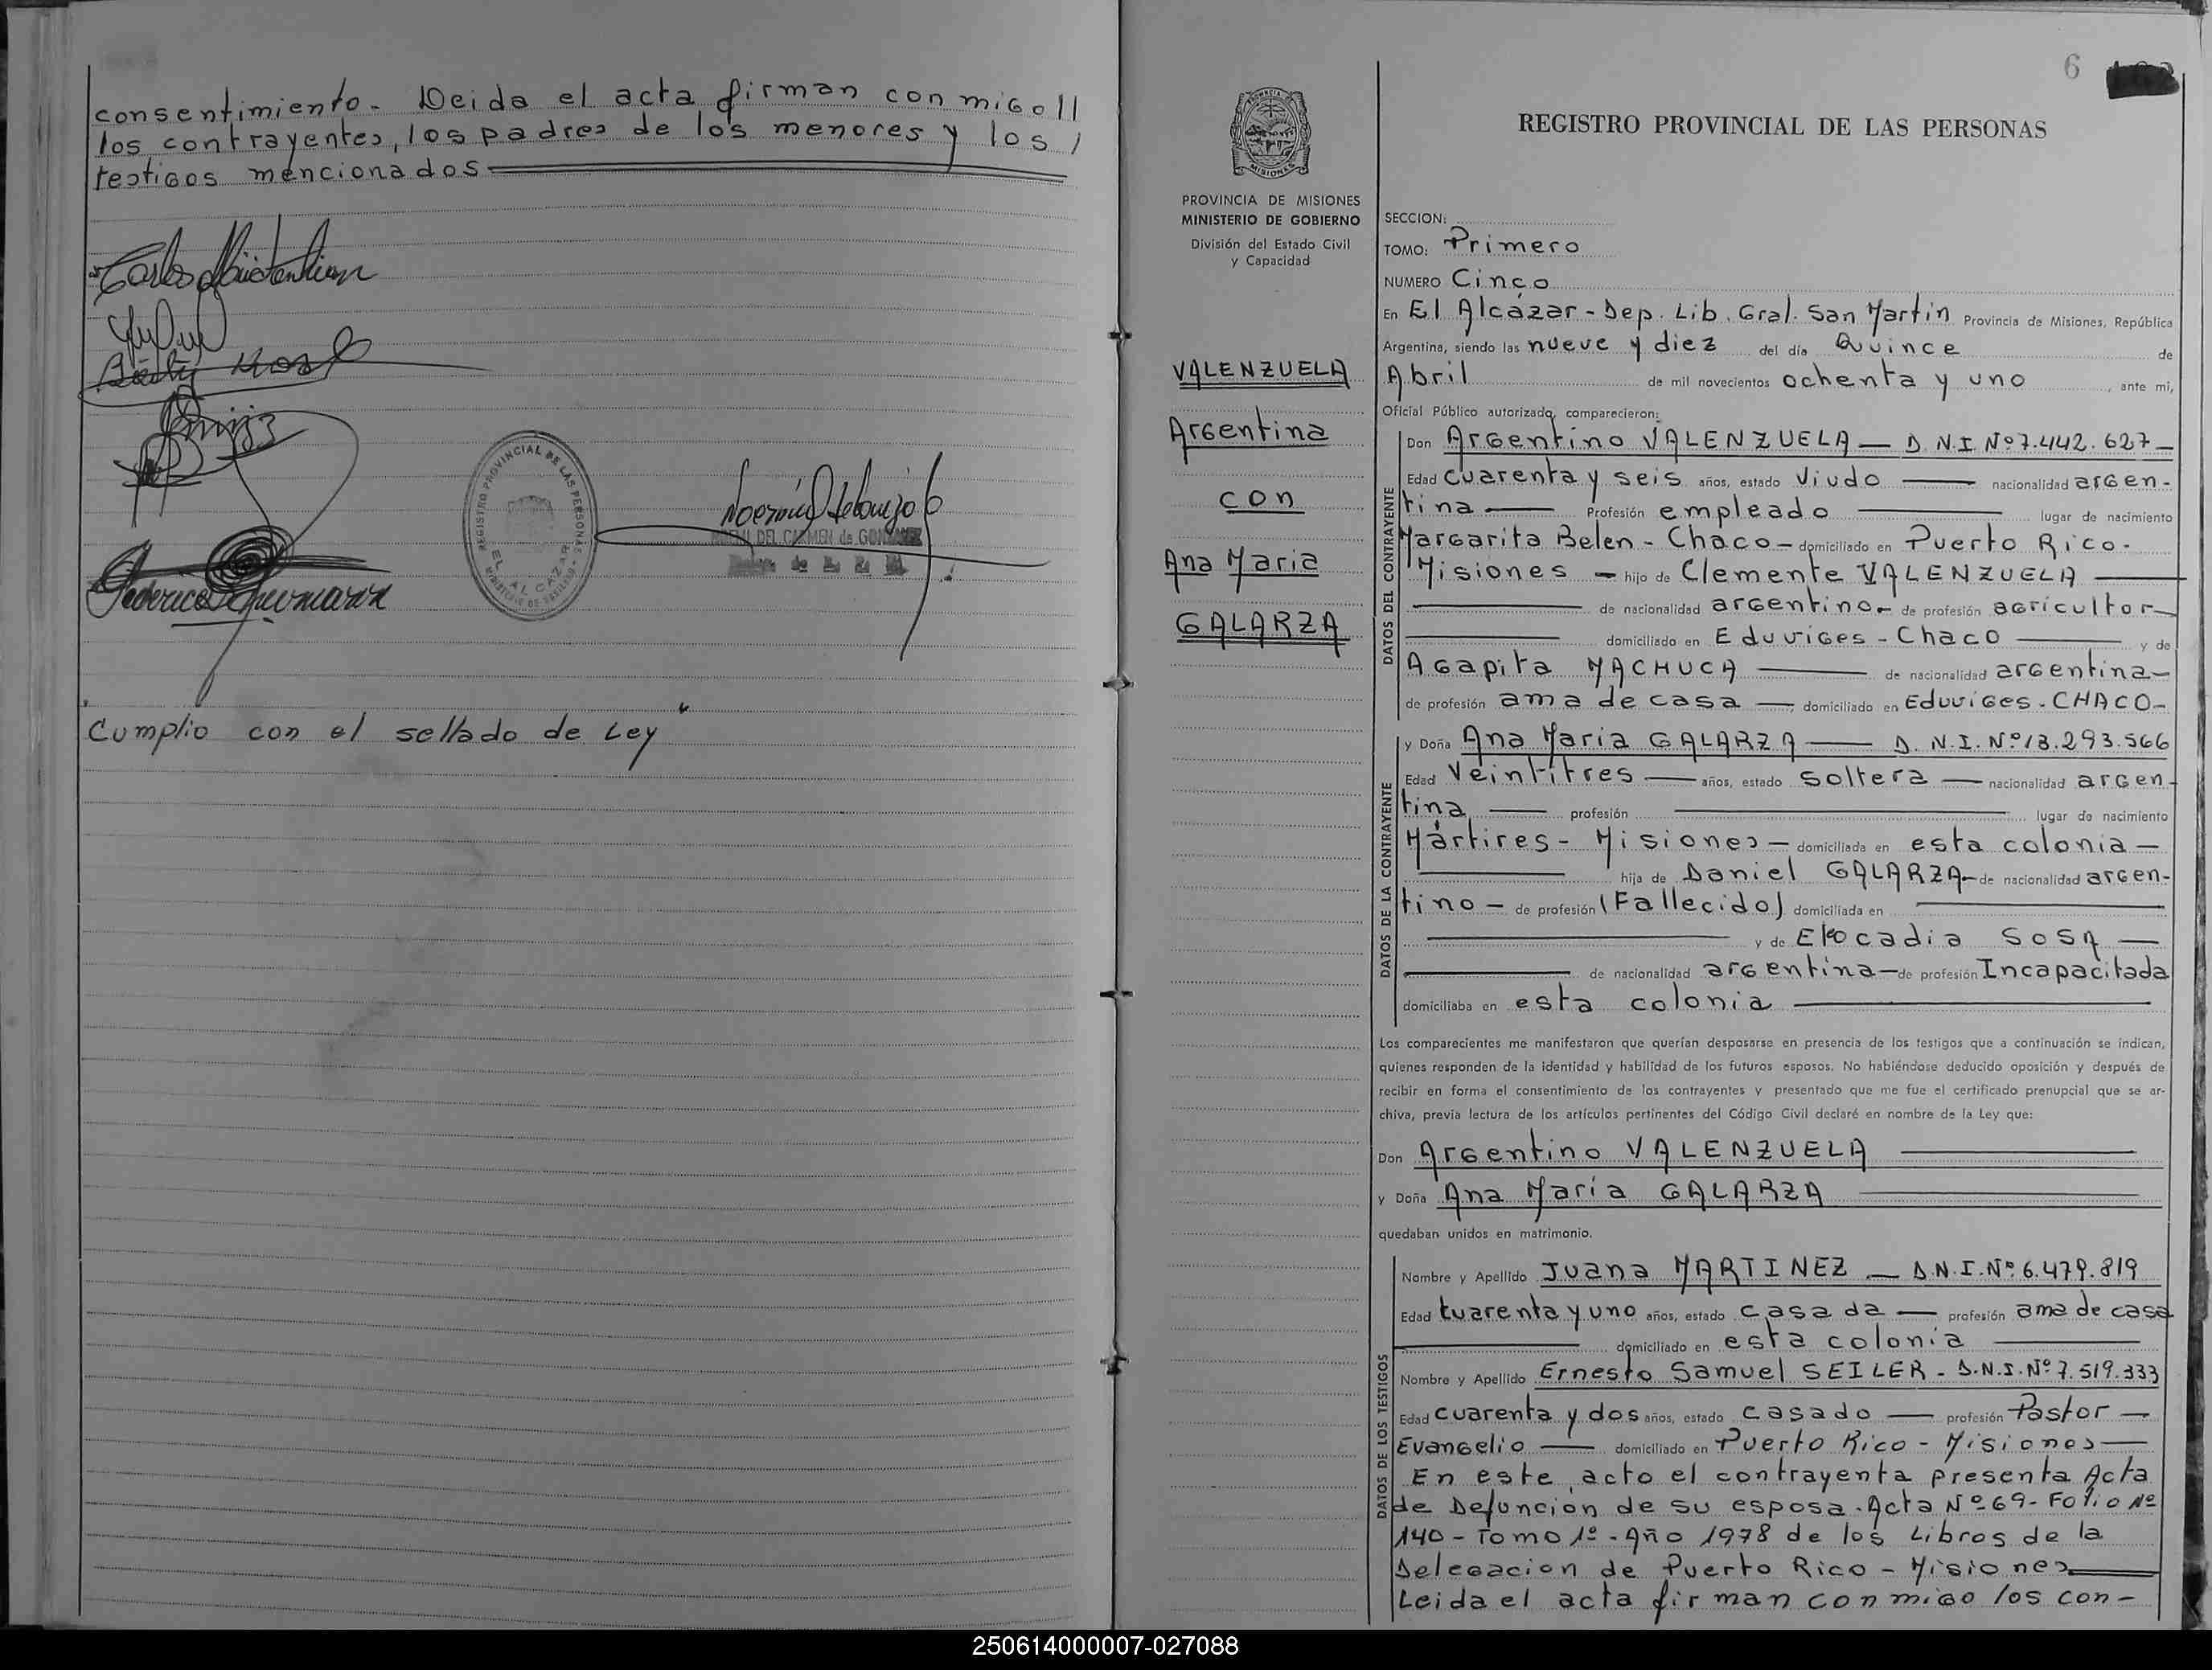 consentimiento. Leida el acta firman con migo //
los contrayentes, los padres de los menores y los /
testigos mencionados
Cumplio con el sellado de Ley
REGISTRO PROVINCIAL DE LAS PERSONAS
EL ALCAZAR
6
PROVINCIA DE MISIONES
MINISTERIO DE GOBIERNO
División del Estado Civil
y Capacidad
VALENZUELA
Argentina
con
Ana Maria
GALARZA
REGISTRO PROVINCIAL DE LAS PERSONAS
SECCION:
TOMO: Primero
NUMERO Cinco
En El Alcázar - Dep. Lib. Gral. San Martin Provincia de Misiones, República
Argentina, siendo las nueve y diez del día Quince de
Abril de mil novecientos ochenta y uno, ante mí,
Oficial Público autorizado, comparecieron:
DATOS DEL CONTRAYENTE
Don Argentino VALENZUELA — D.N.I. Nº 7.442.627 —
Edad cuarenta y seis años, estado Viudo — nacionalidad argen-
tina — Profesión empleado — lugar de nacimiento
Margarita Belen - Chaco - domiciliado en Puerto Rico.
Misiones - hijo de Clemente VALENZUELA —
— de nacionalidad argentino - de profesión agricultor —
— domiciliado en Eduviges - Chaco — y de
Agapita MACHUCA — de nacionalidad argentina —
de profesión ama de casa — domiciliado en Eduviges - CHACO —
DATOS DE LA CONTRAYENTE
y Doña Ana Maria GALARZA — D.N.I. Nº 13.293.566
Edad Veintitres — años, estado soltera — nacionalidad argen-
tina — profesión — lugar de nacimiento
Mártires - Misiones - domiciliada en esta colonia —
— hija de Daniel GALARZA - de nacionalidad argen-
tino - de profesión (Fallecido) domiciliada en —
— y de Elocadia SOSA —
— de nacionalidad argentina - de profesión Incapacitada
domiciliaba en esta colonia —
Los comparecientes me manifestaron que querían desposarse en presencia de los testigos que a continuación se indican,
quienes responden de la identidad y habilidad de los futuros esposos. No habiéndose deducido oposición y después de
recibir en forma el consentimiento de los contrayentes y presentado que me fue el certificado prenupcial que se ar-
chiva, previa lectura de los artículos pertinentes del Código Civil declaré en nombre de la Ley que:
Don Argentino VALENZUELA —
y Doña Ana María GALARZA —
quedaban unidos en matrimonio.
DATOS DE LOS TESTIGOS
Nombre y Apellido Juana MARTINEZ — D.N.I. Nº 6.479.819
Edad cuarenta y uno años, estado casada — profesión ama de casa
— domiciliado en esta colonia —
Nombre y Apellido Ernesto Samuel SEILER - D.N.I. Nº 7.519.333
Edad cuarenta y dos años, estado casado — profesión Pastor —
Evangelio — domiciliado en Puerto Rico - Misiones —
En este acto el contrayenta presenta Acta
de Defunción de su esposa. Acta Nº 69 - Folio Nº
140 - Tomo 1º - Año 1978 de los Libros de la
Delegacion de Puerto Rico - Misiones
Leida el acta firman con migo los con-
250614000007-027088